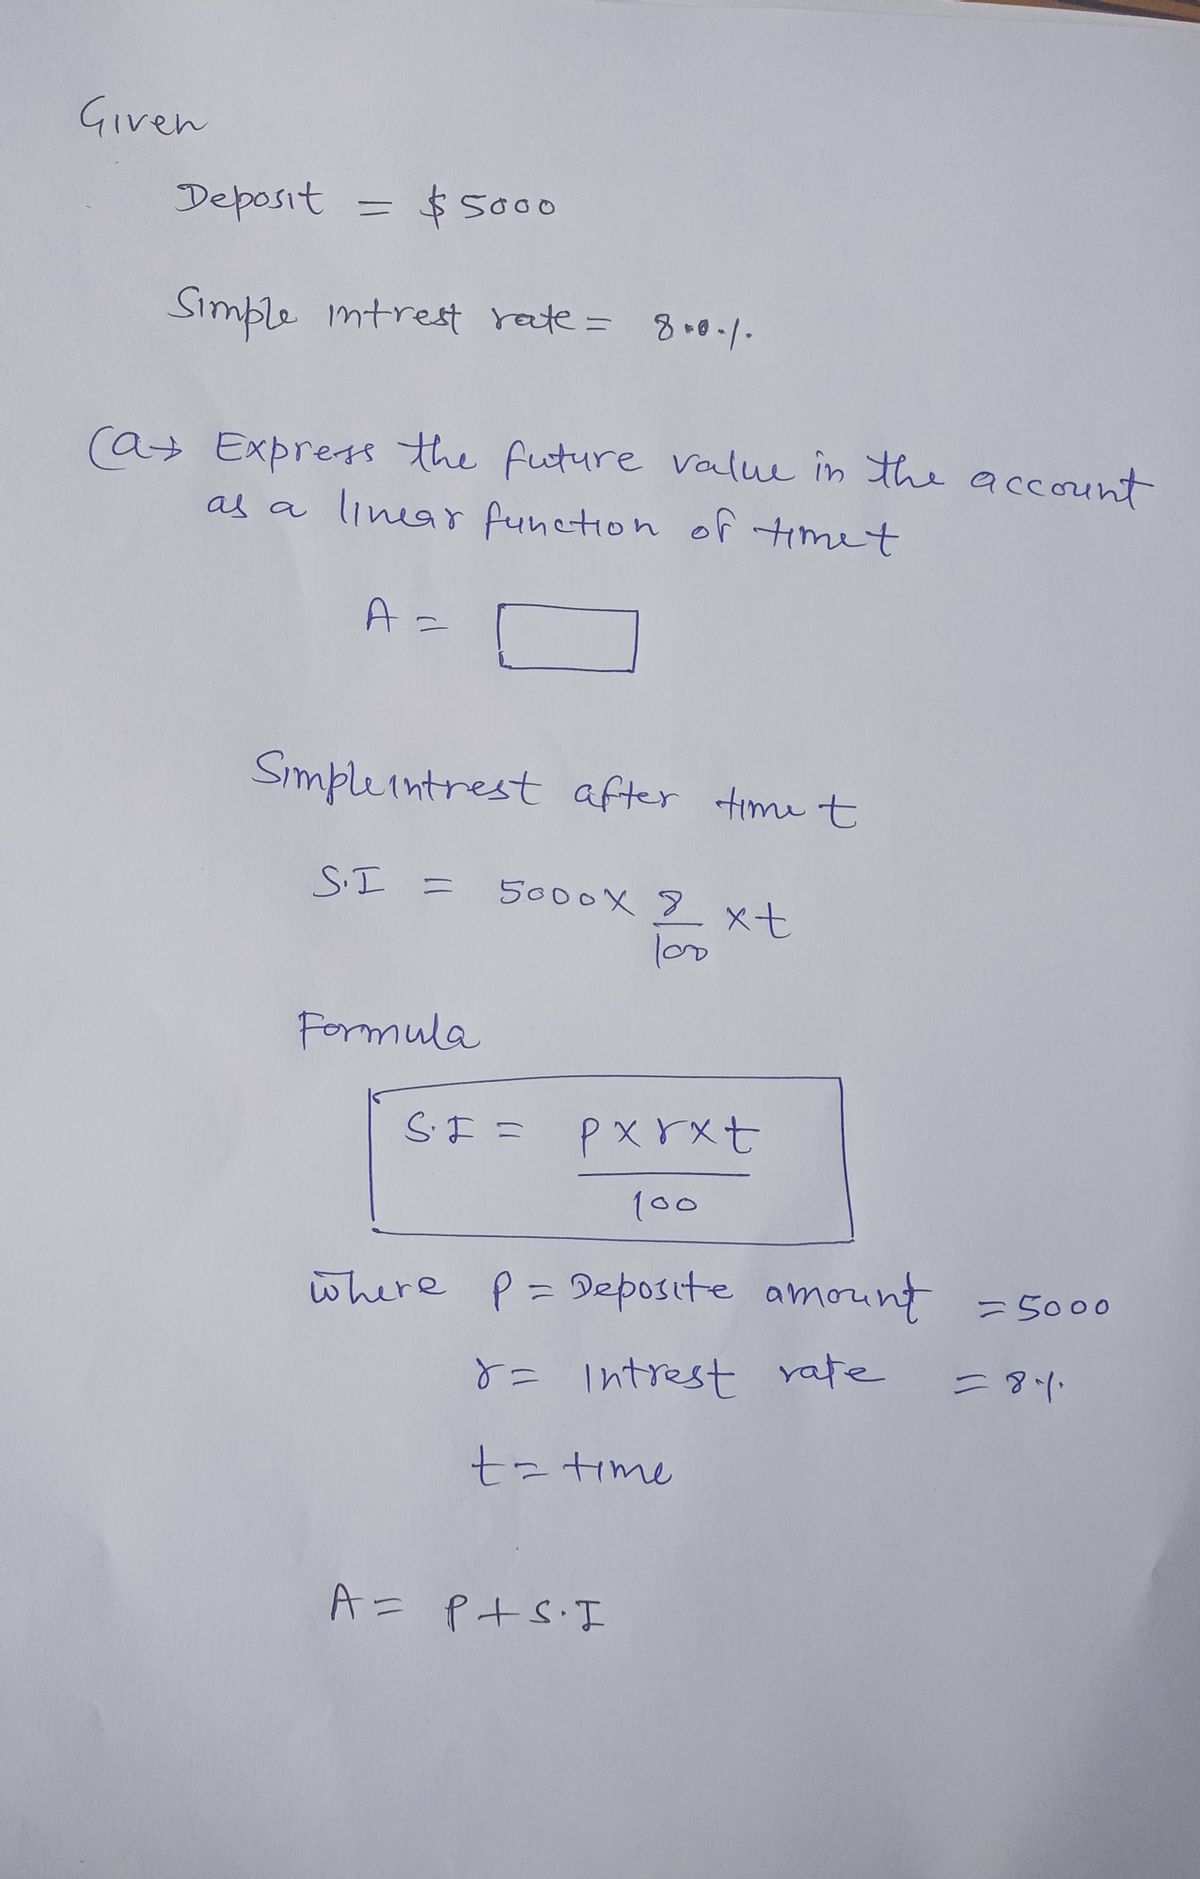 Given
Deposit = $5000
Simple intrest rate = 8.0%
(a→ Express the future value in the account
as a linear function of time t
A =
Simple intrest after time t
S.I = 5000 x 8/100 x t
Formula
S.I = p x r x t
100
where p = Deposite amount = 5000
r = Intrest rate = 8%
t = time
A = p + S.I